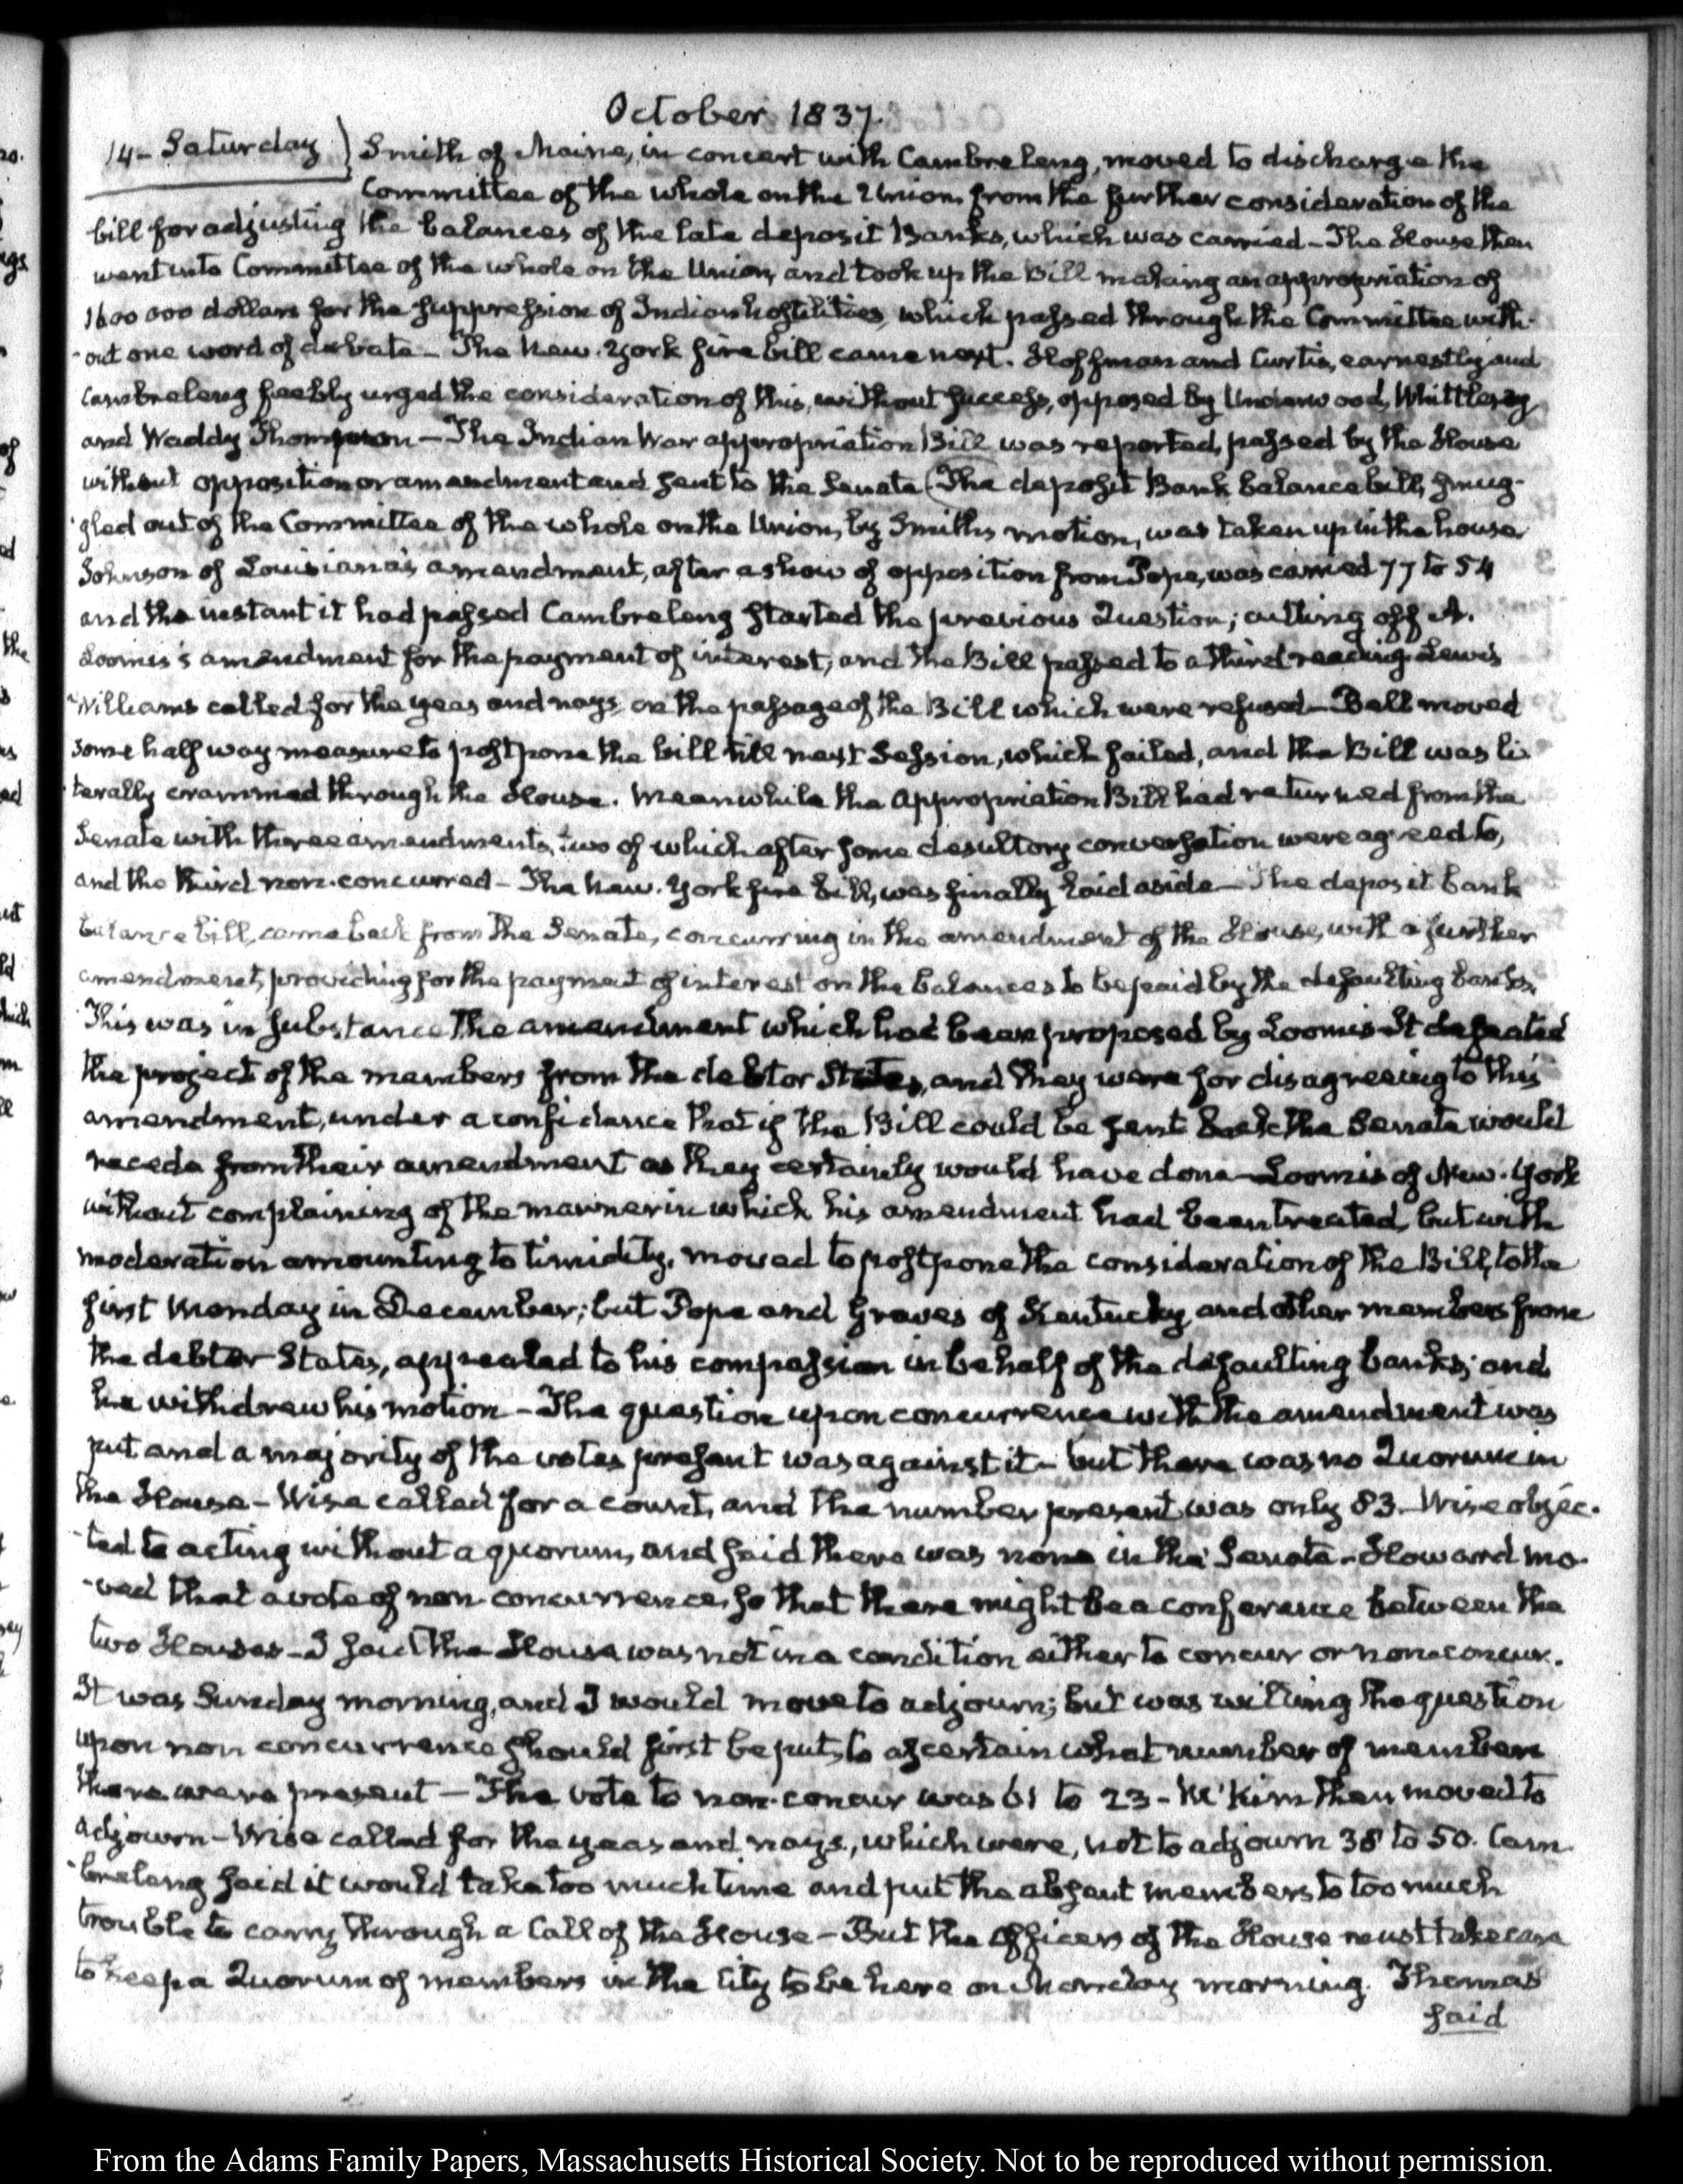 October 1837.
14 - Saturday } Smith of Maine, in concert with Cambreleng, moved to discharge the
Committee of the whole on the Union from the further consideration of the
bill for adjusting the balances of the late deposit Banks, which was carried - The House then
went into Committee of the whole on the Union, and took up the Bill making an appropriation of
1600 000 dollars for the suppression of Indian hostilities, which passed through the Committee with-
-out one word of debate - The New-York fire bill came next. Hoffman and Curtis, earnestly and
Cambreleng feebly urged the consideration of this, without success, opposed by Underwood, Whittlesey
and Waddy Thompson - The Indian War appropriation Bill was reported, passed by the House
without opposition or amendment and sent to the Senate (The deposit Bank balance bill, smug-
-gled out of the Committee of the whole on the Union, by Smith's motion, was taken up in the house
Johnson of Louisiana's amendment, after a show of opposition from Pope, was carried 77 to 54
and the instant it had passed Cambreleng started the previous Question; cutting off A.
Loomis's amendment for the payment of interest, and the Bill passed to a third reading. Lewis
Williams called for the yeas and nays on the passage of the Bill which were refused - Bell moved
some half way measure to postpone the bill till next Session, which failed, and the Bill was li-
-terally crammed through the House. Meanwhile the Appropriation Bill had returned from the
Senate with three amendments, two of which after some desultory conversation were agreed to,
and the third non-concurred - The New-York fire bill, was finally laid aside - The deposit bank
balance bill, came back from the Senate, concurring in the amendment of the House, with a further
amendment, providing for the payment of interest on the balances to be paid by the defaulting banks.
This was in substance the amendment which had been proposed by Loomis - It defeated
the project of the members from the debtor States, and they were for disagreeing to this
amendment, under a confidence that if the Bill could be sent back the Senate would
recede from their amendment as they certainly would have done - Loomis of New-York
without complaining of the manner in which his amendment had been treated, but with
moderation amounting to timidity, moved to postpone the consideration of the Bill, to the
first Monday in December; but Pope and Graves of Kentucky, and other members from
the debtor States, appealed to his compassion in behalf of the defaulting banks; and
he withdrew his motion - The question upon concurrence with the amendment was
put and a majority of the votes present was against it - but there was no Quorum in
the House - Wise called for a count, and the number present was only 83. Wise objec-
-ted to acting without a quorum, and said there was none in the Senate - Howard mo-
-ved that a vote of non-concurrence, so that there might be a conference between the
two Houses - I said the House was not in a condition either to concur or non-concur.
It was Sunday morning, and I would move to adjourn; but was willing the question
upon non concurrence should first be put, to ascertain what number of members
there were present - The vote to non-concur was 61 to 23 - McKim then moved to
adjourn - Wise called for the yeas and nays, which were, not to adjourn 38 to 50. Cam
-breleng said it would take too much time and put the absent members to too much
trouble to carry through a Call of the House - But the Officers of the House must take care
to keep a Quorum of members in the City to be here on Monday morning. Thomas
said
From the Adams Family Papers, Massachusetts Historical Society. Not to be reproduced without permission.